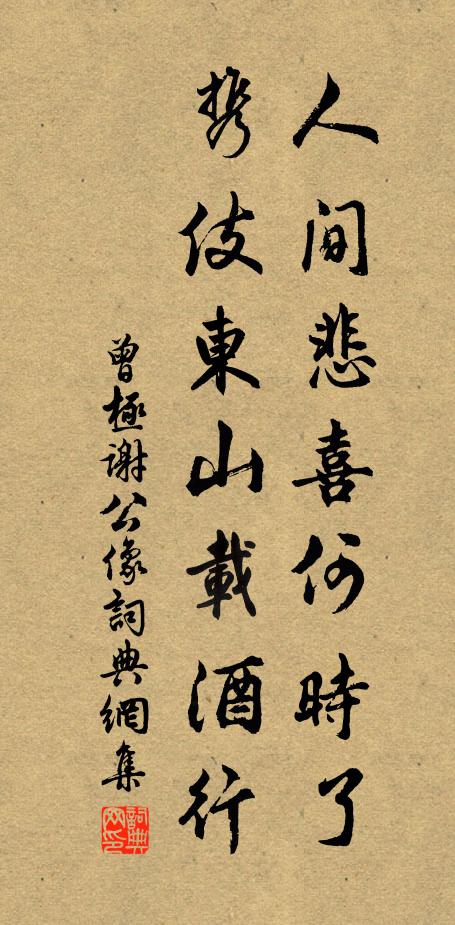 人間悲喜何時了
攜伎東山載酒行
曾極謝公像詞典網集
詞典網印